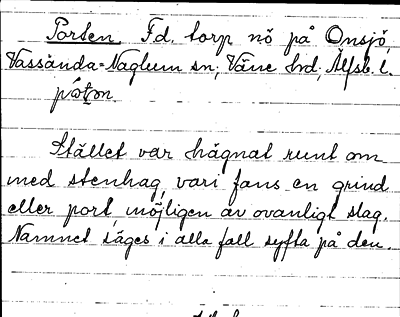 Porten. Fd. torp nö på Önsjö,
Vassända-Naglum sn; Väne hd; Älfsb. l.
Stället var hägnat runt om
med stenhag, vari fans en grind
eller port, möjligen av ovanligt slag.
Namnet säges i alla fall syfta på den.